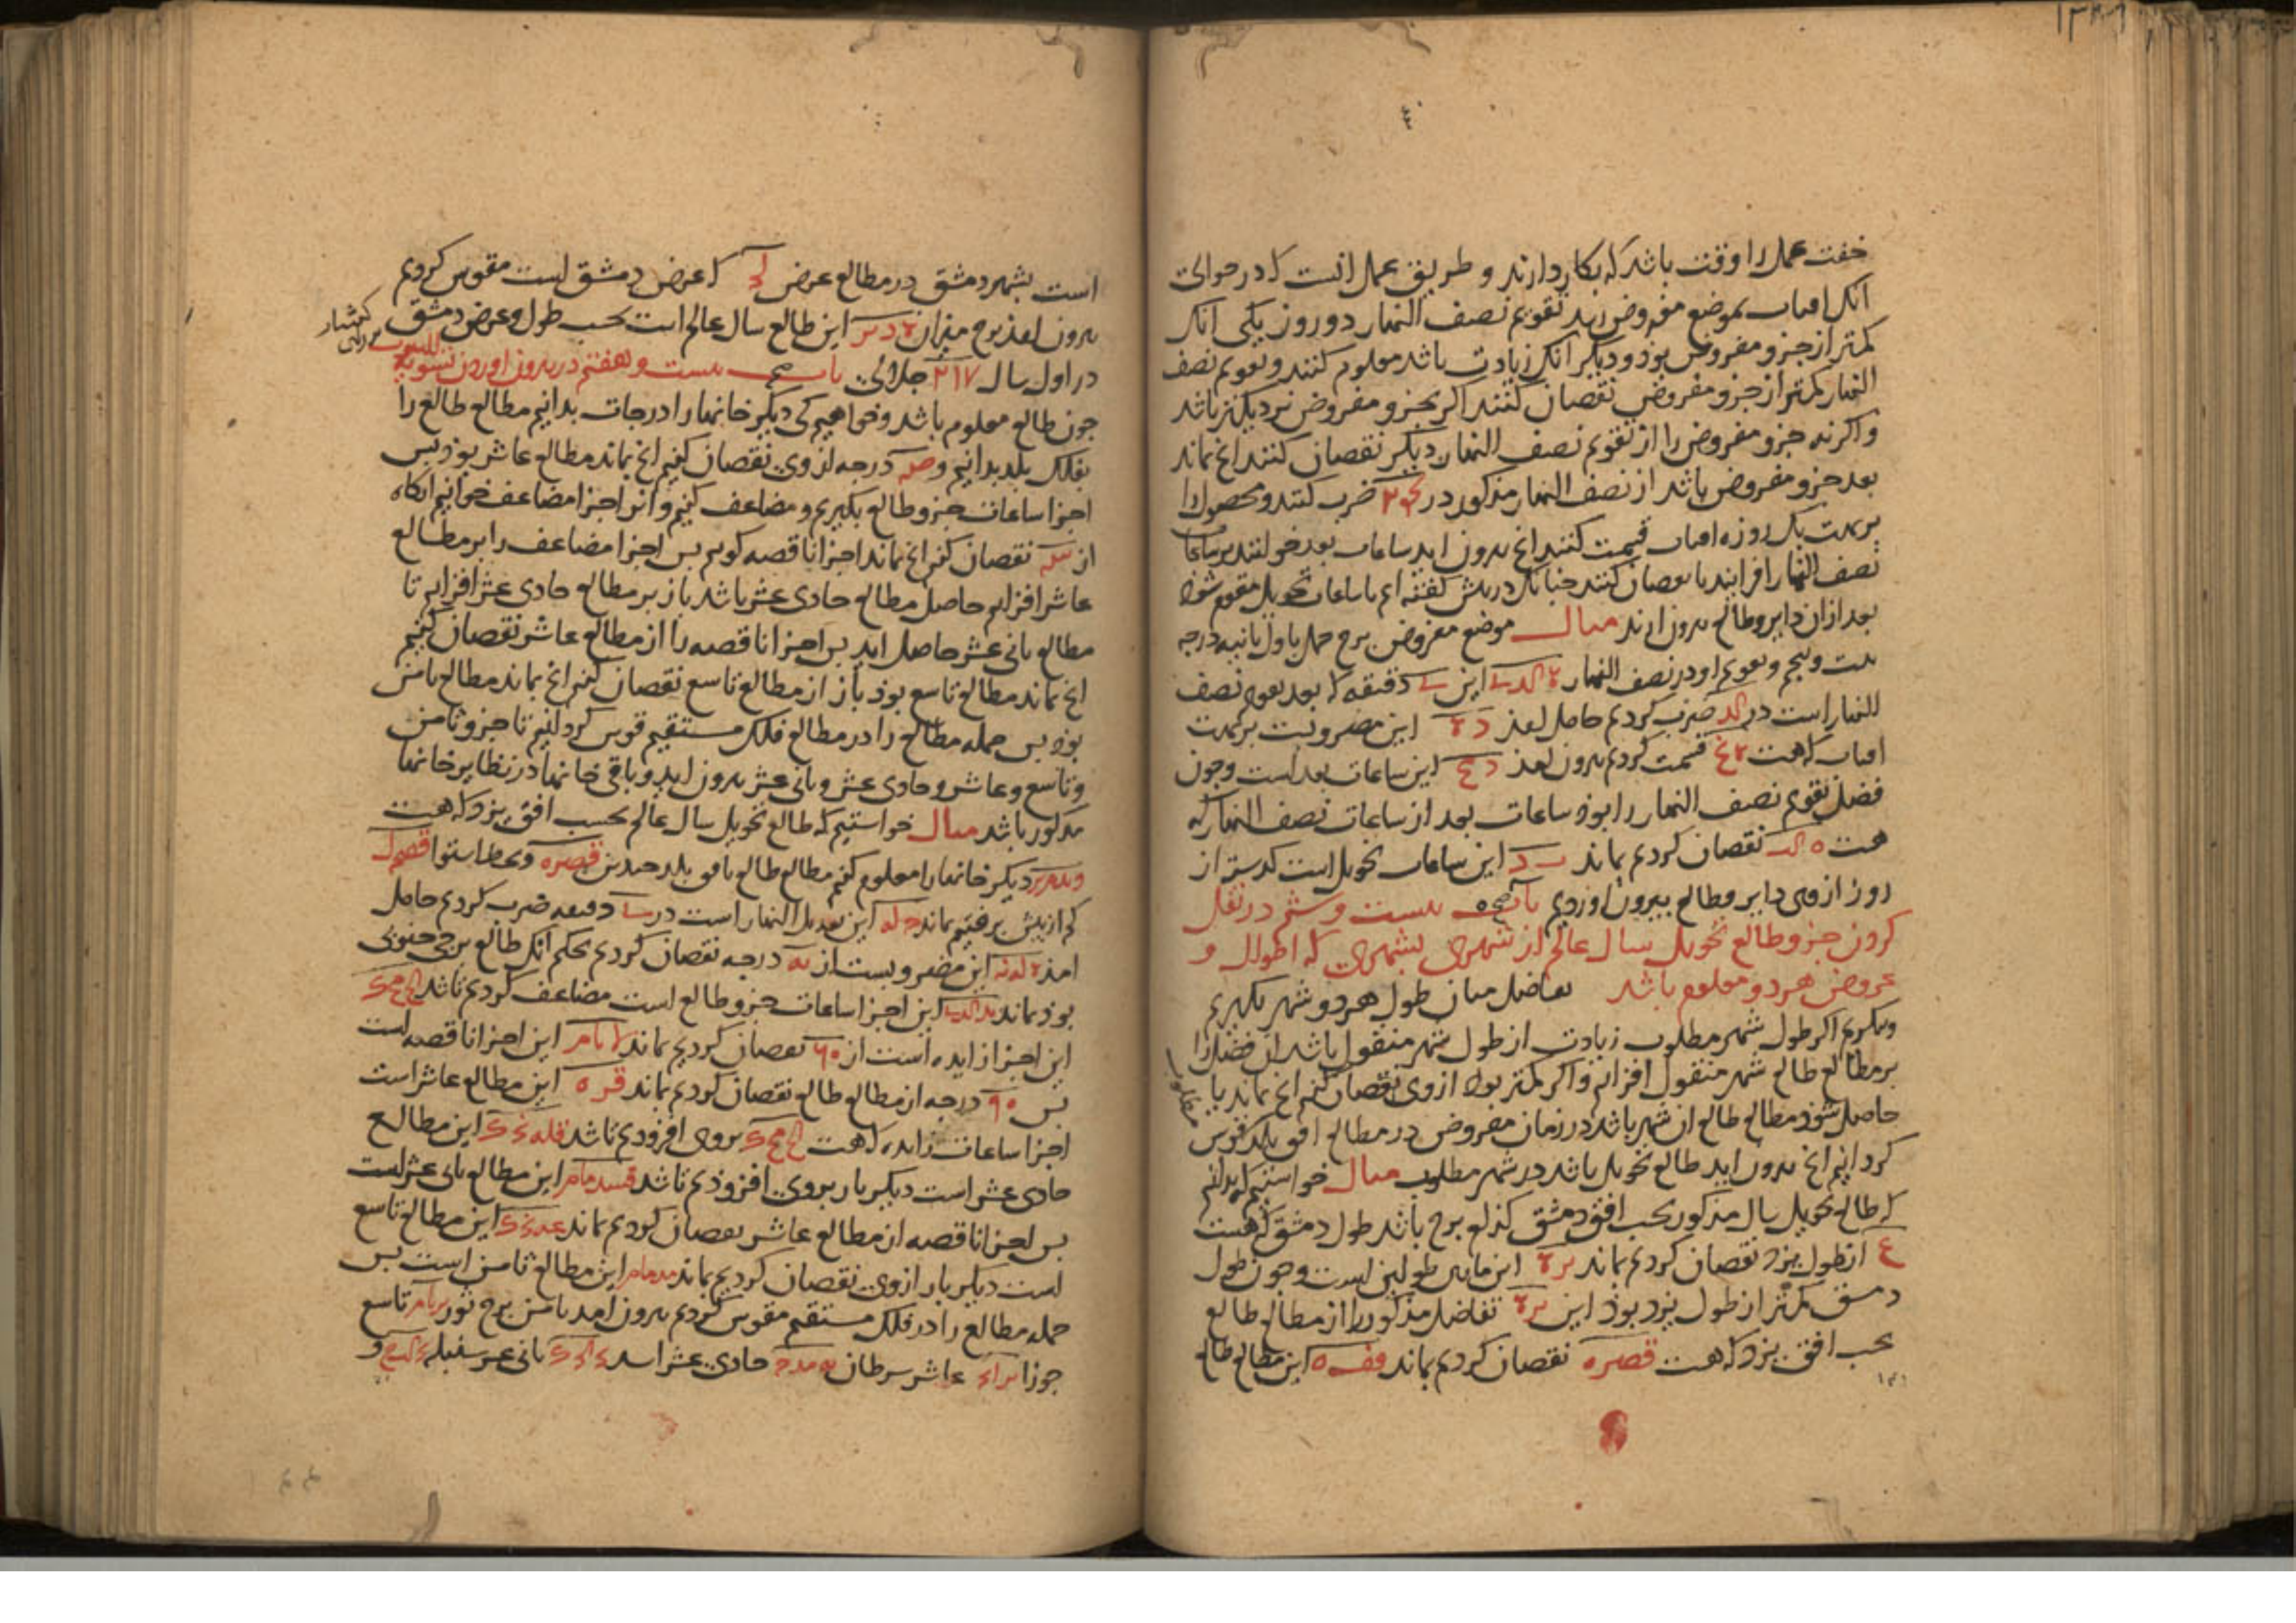 خفت عمل را وقت باشد که بکار دارند و طریق عمل انست که در حوالی
انک افتاب بموضع مفروض رسد تقویم نصف النهار دو روز یکی انک
کمتر از جزو مفروض بود و دیکر انک زیادت باشد معلوم کنند و تقویم نصف
النهار کمتر از جزو مفروض نقصان کنند اکر بجزو مفروض نزدیکتر باشد
واکرنه جزو مفروض را از تقویم نصف النهار دیکر نقصان کنند انچ بماند
بعد جزو مفروض باشد از نصف النهار مذکور در ضرب کنند و محصول را
بر بهت یک روزه افتاب قسمت کنند انچ بیرون اید ساعات بعد خوانند بر ساعات
نصف النهار افزایند یا نقصان کنند چنانک در پیش کفته ایم تا ساعات تحویل مقوم شود
بعد ازان دایر و طالع بیرون ارند مثال موضع مفروض برج حمل باول ثانیه درجه
بیست وپنجم و تقویم او در نصف النهار این دقیقه که بعد تقویم نصف
النهار است در ضرب کردیم حاصل امذ این مضروبست بر بهت
افتاب که هست قسمت کردیم بیرون امذ این ساعات بعد است وچون
فضل تقویم نصف النهار را بوذ ساعات بعد از ساعات نصف النهار که
هست نقصان کردیم بماند این ساعات تحویل است کذشته از
روز ازوی دایر و طالع بیرون اوردیم باب بیست و ششم در نقل
کردن جزو طالع تحویل سال عالم از شهری بشهری که اطوال و
عروض هر دو معلوم باشد تفاضل میان طول هر دو شهر بکیریم
وبنکریم اکر طول شهر مطلوب زیادت از طول شهر منقول باشد ان فضل را
بر مطالع طالع شهر منقول افزائیم واکر کمتر بود ازوی نقصان کنیم انچ بماند یا
حاصل شود مطالع طالع ان شهر باشد در زمان مفروض در مطالع افق بلد قوس
مطلوب
کردانیم انچ بیرون اید طالع تحویل باشد در شهر مطلوب مثال خواستیم که بدانیم
که طالع تحویل سال مذکور بحسب افق دمشق کدام برج باشد طول دمشق که هست
ع از طول یزد نقصان کردیم بماند این مابین طولین است وچون طول
دمشق کمتر از طول یزد بوذ این تفاضل مذکور را از مطالع طالع
بحسب افق یزد که هست قصره نقصان کردیم بماند این مطالع طالع
است بشهر دمشق در مطالع عرض که عرض دمشق است مقوس کردیم
بیرون امذ برج میزان این طالع سال عالم است بحسب طول و عرض دمشق
در اول سال ۲۱۷ جلالی باب بیست و هفتم در بیرون اوردن تسویه البیوت
چون طالع معلوم باشد وخواهیم کی دیکر خانها را درجات بدانیم مطالع طالع را
بفلک بلد بدانیم و صه درجه ازوی نقصان کنیم انچ بماند مطالع عاشر بود پس
اجزا ساعات جزو طالع بکیریم و مضاعف کنیم وانرا اجزا مضاعف خوانیم انکاه
از نقصان کنیم انچ بماند اجزا ناقصه کوییم پس اجزا مضاعف را بر مطالع
عاشر افزاییم حاصل مطالع حادی عشر باشد باز بر مطالع حادی عشر افزاییم تا
مطالع ثانی عشر حاصل اید پس اجزا ناقصه را از مطالع عاشر نقصان کنیم
انچ بماند مطالع تاسع بود باز از مطالع تاسع نقصان کنیم انچ بماند مطالع ثامن
بود پس جمله مطالع را در مطالع فلک مستقیم قوس کردانیم تا جزو ثامن
وتاسع و عاشر و حادی عشر و ثانی عشر بیرون اید و باقی خانها در نظایر خانها
مذکور باشد مثال خواستیم که طالع تحویل سال عالم بحسب افق یزد که هست
دیکر خانها را معلوم کنیم مطالع طالع بافق بلد چندین قصره وبخط استوا
کم از بیش برفتیم بماند این تعدیل النهار است در دقیقه ضرب کردیم حاصل
امذ این مضروبست از درجه نقصان کردیم بحکم انک طالع برجی جنوبی
بوذ بماند این اجزا ساعات جزو طالع است مضاعف کردیم تا شد
این اجزا زایده است از نقصان کردیم بماند این اجزا ناقصه است
پس درجه از مطالع طالع نقصان کردیم بماند قره این مطالع عاشر است
اجزا ساعات زایده که هست بروی افزودیم تا شد این مطالع
حادی عشر است دیکر بار بروی افزوذیم تا شد این مطالع ثانی عشر است
پس اجزا ناقصه از مطالع عاشر نقصان کردیم بماند این مطالع تاسع
است دیکر بار ازوی نقصان کردیم بماند این مطالع ثامن است پس
جمله مطالع را در فلک مستقیم مقوس کردیم بیرون امد ثامن برج ثور تاسع
جوزا عاشر سرطان حادی عشر اسد ثانی عشر سنبله و